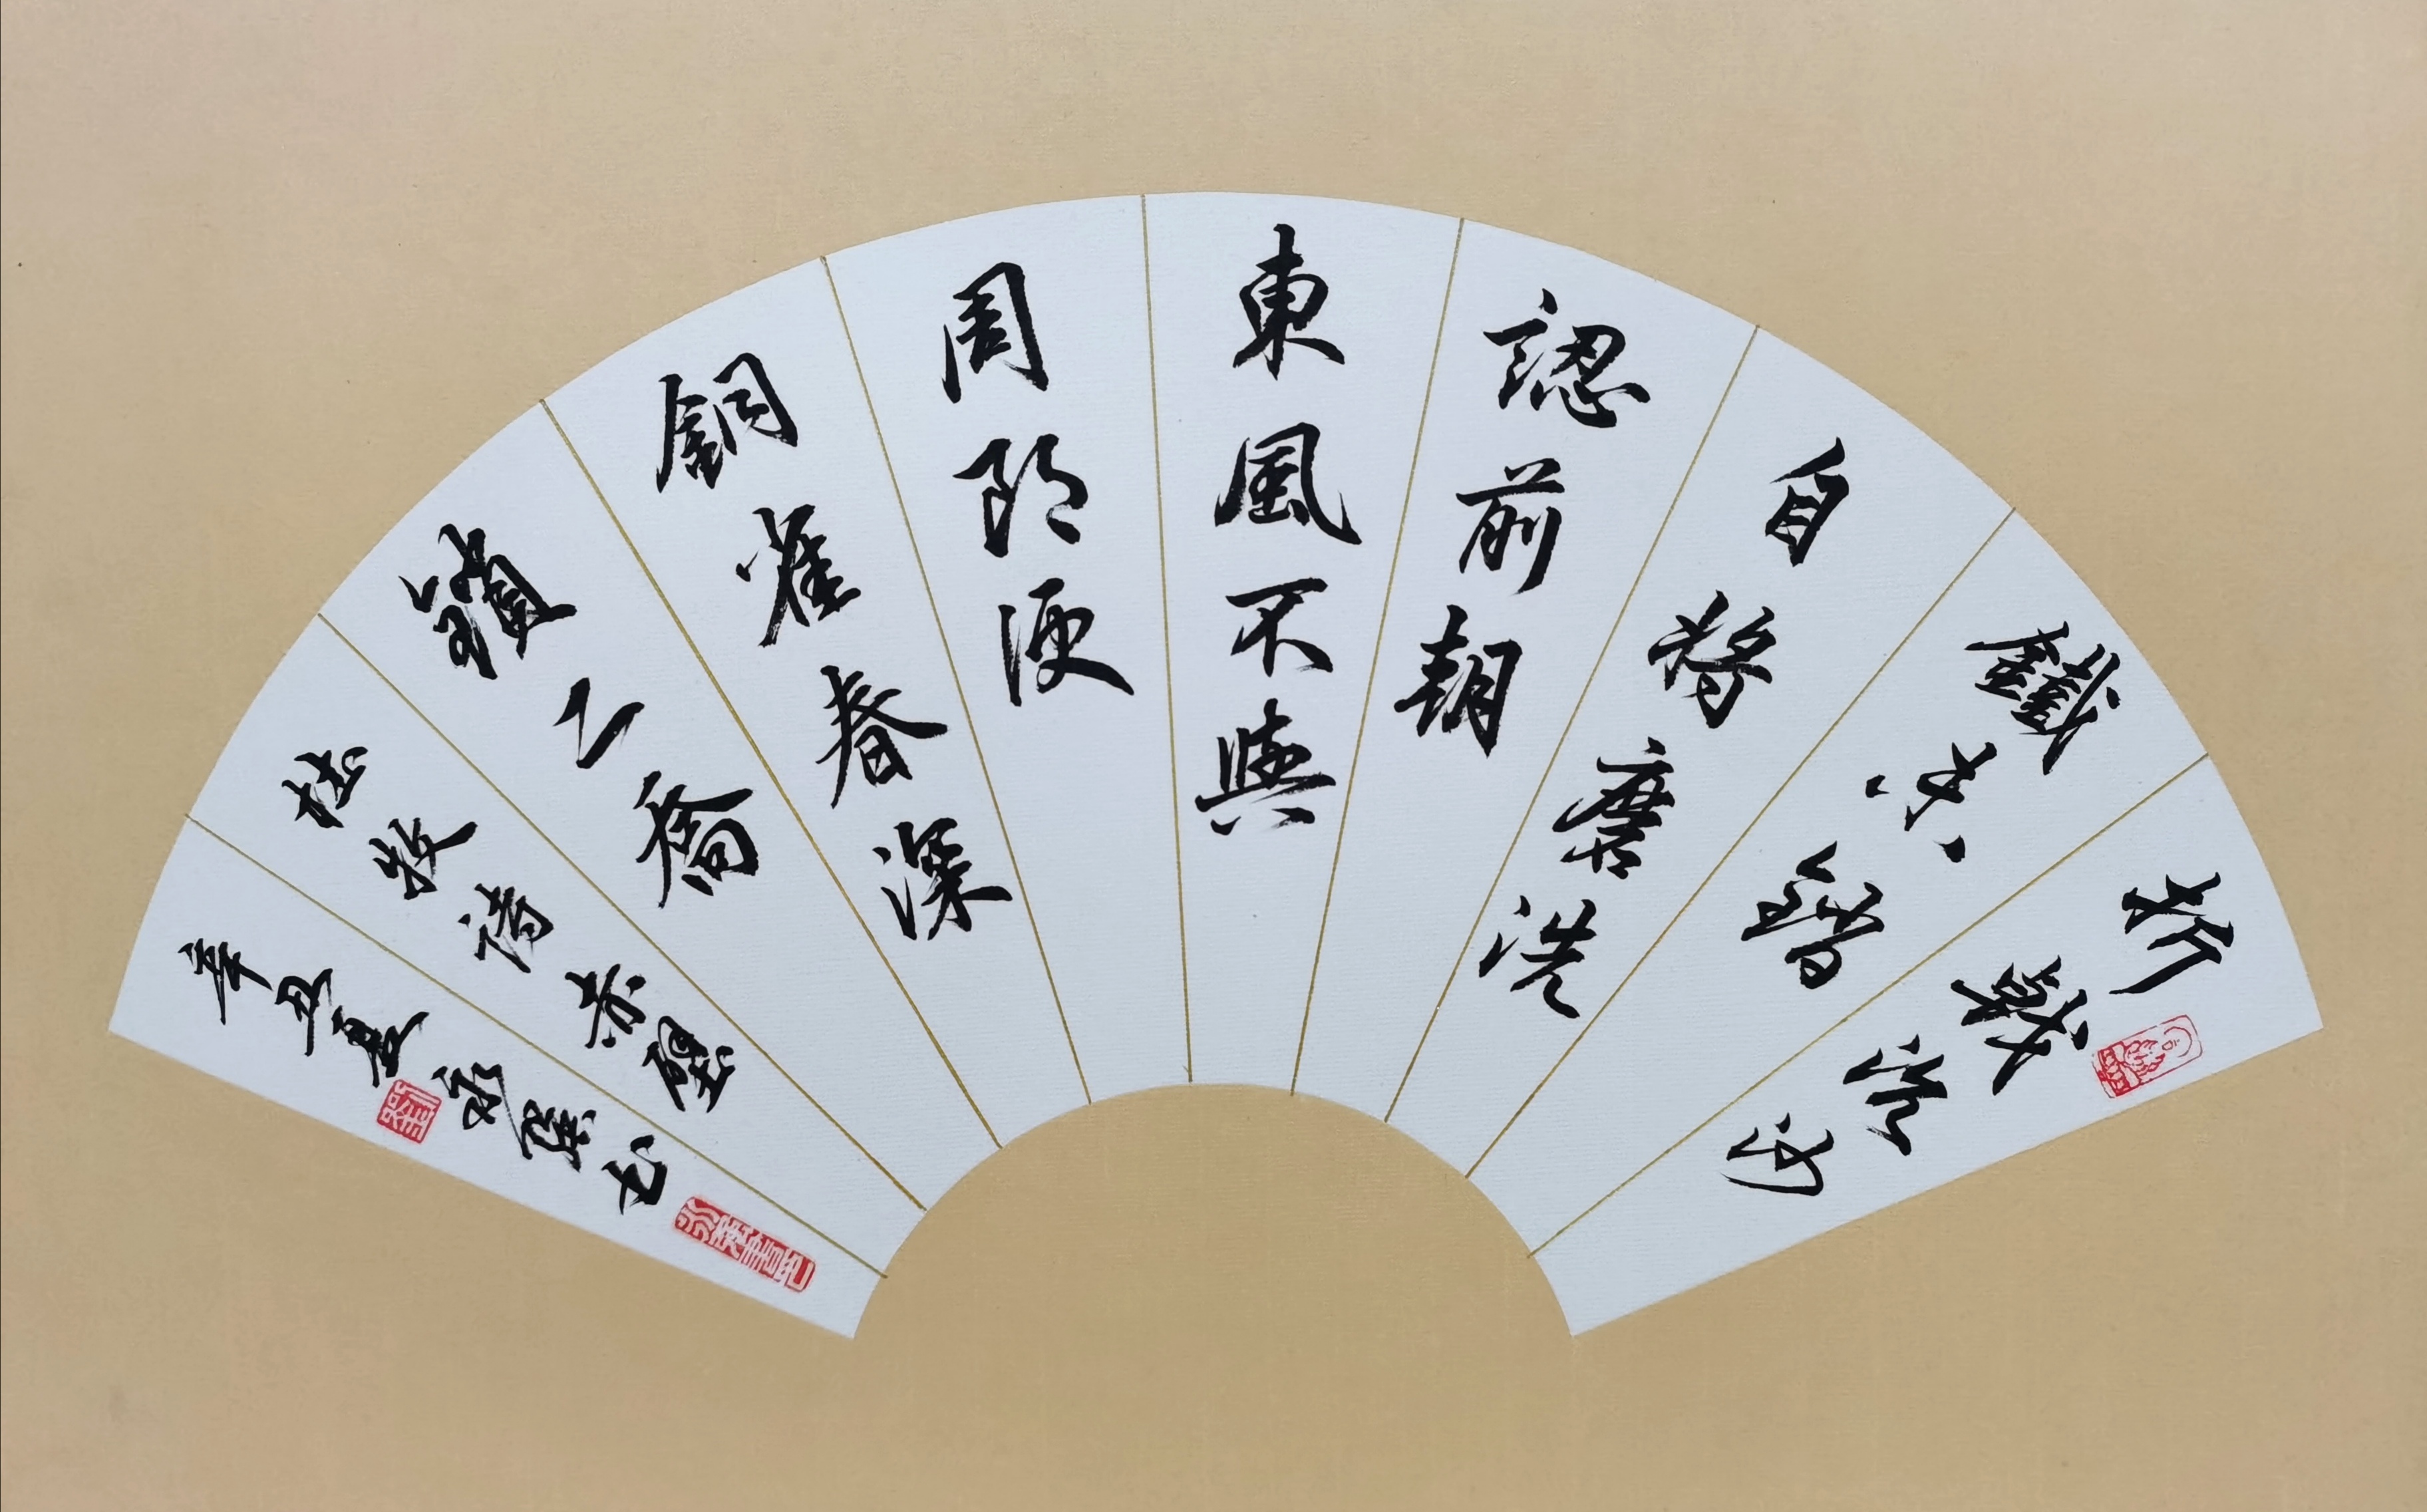 折戟沉沙
鐵未銷
自將磨洗
認前朝
東風不與
周郎便
銅雀春深
鎖二喬
杜牧詩赤壁
辛丑夏书